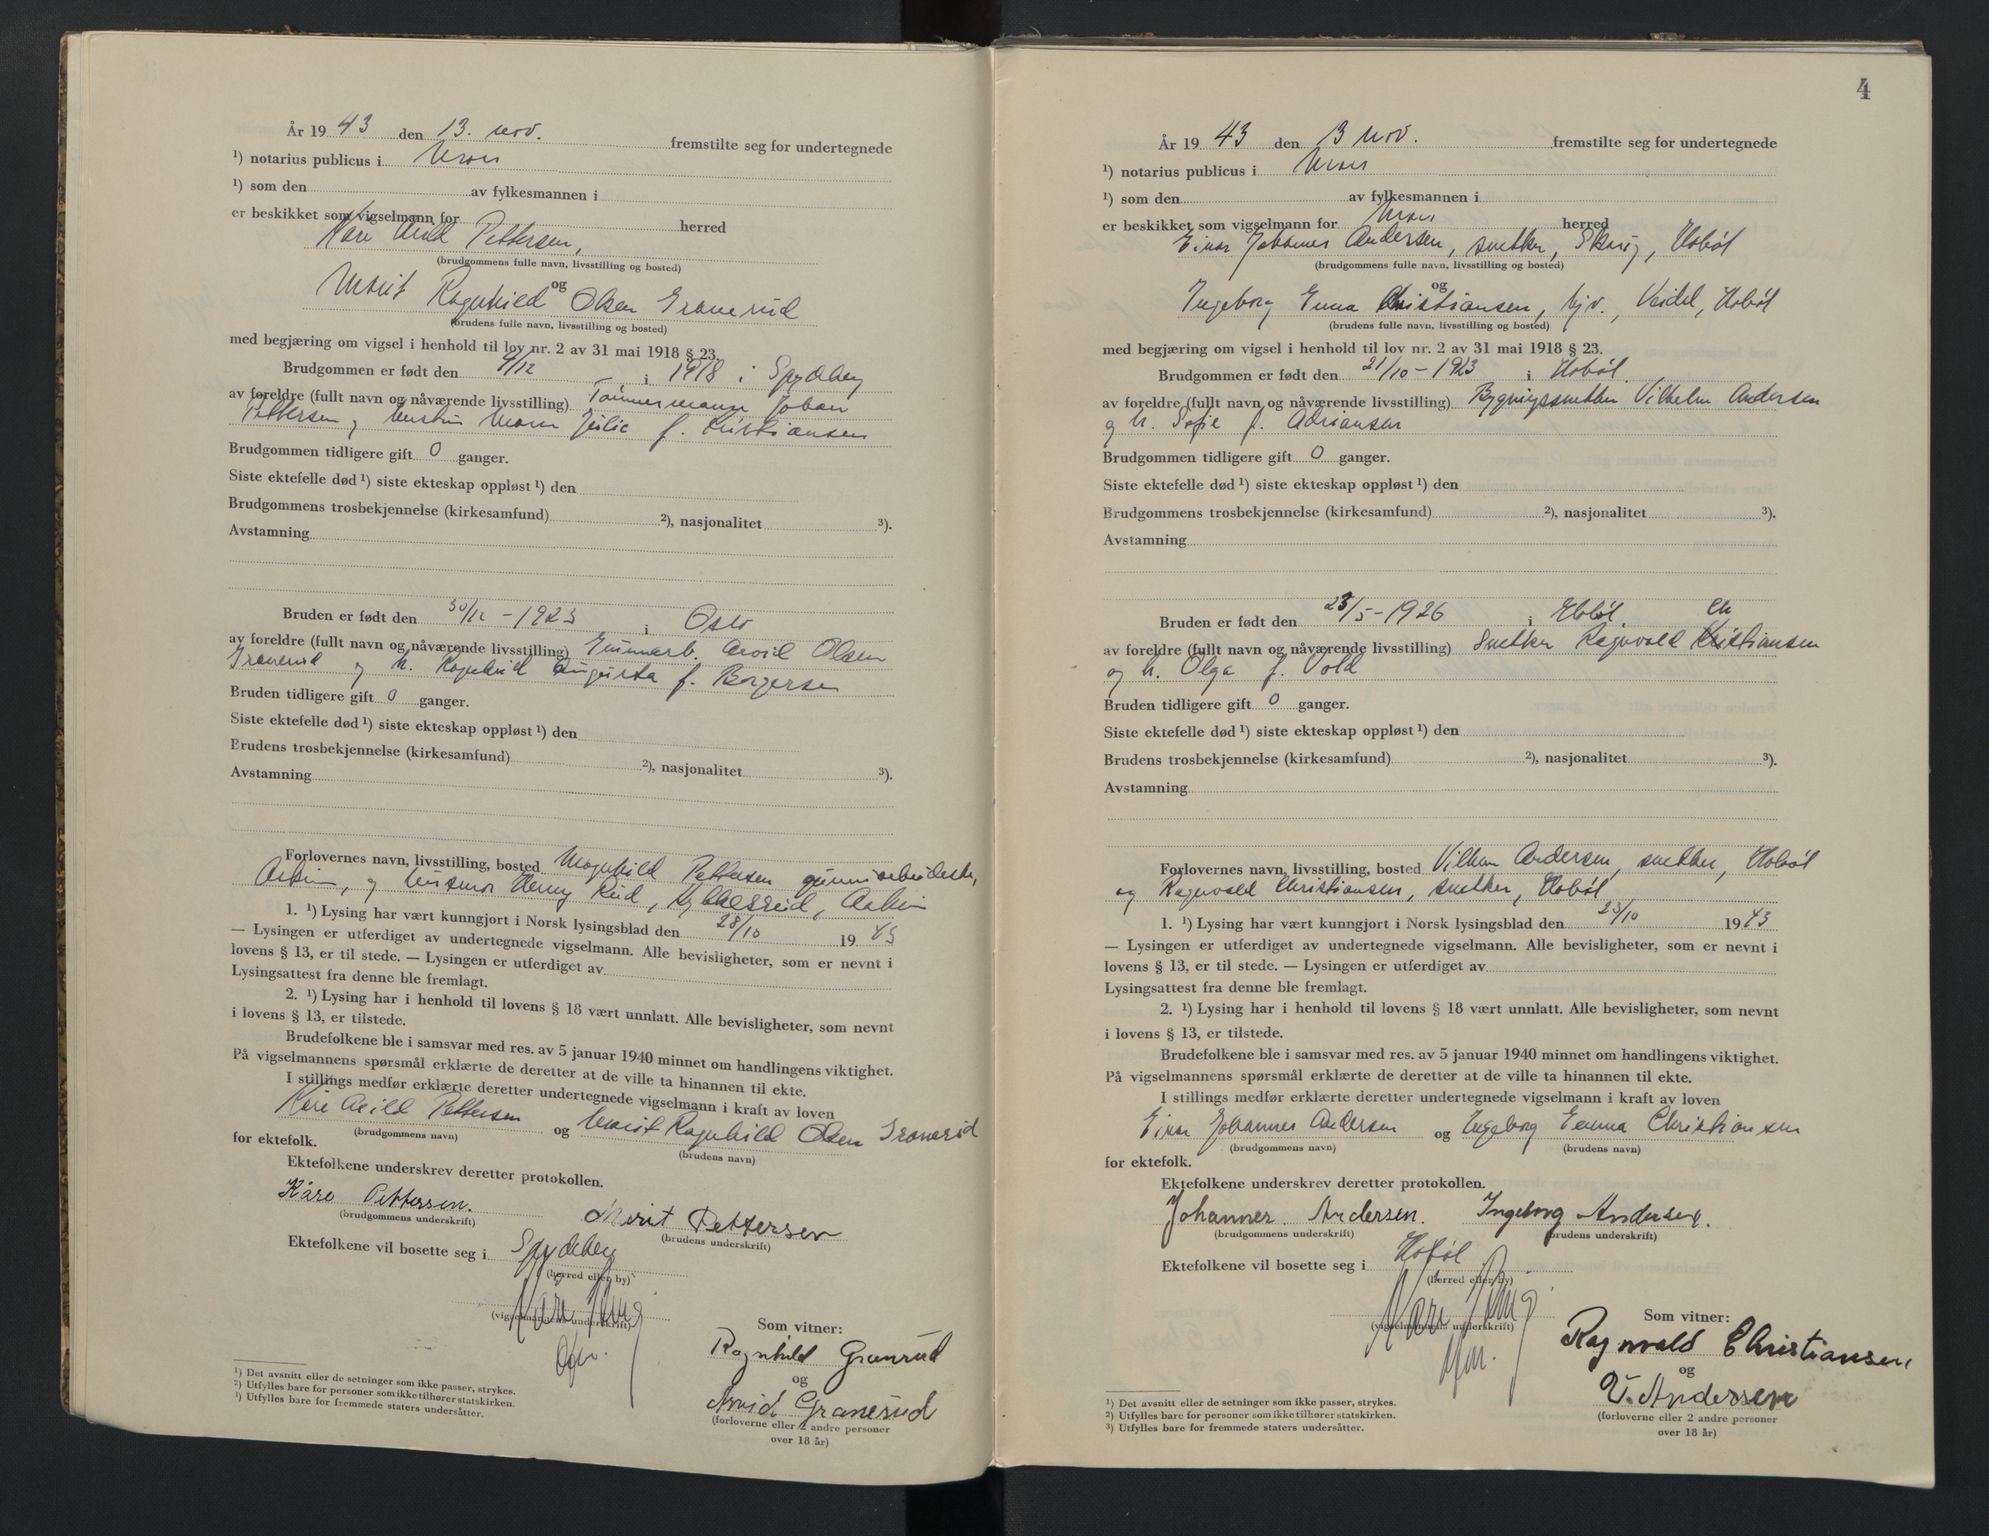 År 19 43 den 13. nov. fremstilte seg for undertegnede
¹) notarius publicus i
¹) som den av fylkesmannen i
er beskikket som vigselmann for herred
Kåre Arild Pettersen,
(brudgommens fulle navn, livsstilling og bosted)
og
Marit Ragnhild Olsen Granerud
(brudens fulle navn, livsstilling og bosted)
med begjæring om vigsel i henhold til lov nr. 2 av 31 mai 1918 § 23.
Brudgommen er født den 4/12 i 1918 i Spydeberg
av foreldre (fullt navn og nåværende livsstilling) Tømmermann Johan
Pettersen og hustru f. Kristiansen
Brudgommen tidligere gift 0 ganger.
Siste ektefelle død ¹) siste ekteskap oppløst ¹) den
Brudgommens trosbekjennelse (kirkesamfund) ²), nasjonalitet ³).
Avstamning
Bruden er født den 30/12 - 1923 i Oslo
av foreldre (fullt navn og nåværende livsstilling) Gummiarb. Arvid Olsen
Granerud og h. Ragnhild Augusta f. Borgersen
Bruden tidligere gift 0 ganger.
Siste ektefelle død ¹) siste ekteskap oppløst ¹) den
Brudens trosbekjennelse (kirkesamfund) ²), nasjonalitet ³).
Avstamning
Forlovernes navn, livsstilling, bosted Magnhild Pettersen gummiarbeiderske,
Askim, og husmor Henny Rud, Askim
1. ¹) Lysing har vært kunngjort i Norsk lysingsblad den 28/10 19 43
— Lysingen er utferdiget av undertegnede vigselmann. Alle bevisligheter, som er nevnt i
lovens § 13, er til stede. — Lysingen er utferdiget av
Lysingsattest fra denne ble fremlagt.
2. ¹) Lysing har i henhold til lovens § 18 vært unnlatt. Alle bevisligheter, som nevnt
i lovens § 13, er tilstede.
Brudefolkene ble i samsvar med res. av 5 januar 1940 minnet om handlingens viktighet.
På vigselmannens spørsmål erklærte de deretter at de ville ta hinannen til ekte.
I stillings medfør erklærte deretter undertegnede vigselmann i kraft av loven
Kåre Arild Pettersen og Marit Ragnhild Olsen Granerud
(brudgommens navn) (brudens navn)
for ektefolk.
Ektefolkene underskrev deretter protokollen.
Kåre Pettersen. Marit Pettersen
(brudgommens underskrift) (brudens underskrift)
Ektefolkene vil bosette seg i Spydeberg
(herred eller by)
(vigselmannens underskrift)
Som vitner:
Ragnhild Granerud
og
Arvid Granerud
(forloverne eller 2 andre personer
over 18 år)
¹) Det avsnitt eller de setninger som ikke passer, strykes.
²) Utfylles bare for personer som ikke tilhører statskirken.
³) Utfylles bare for fremmede staters undersåtter.
4
År 19 43 den 13 nov. fremstilte seg for undertegnede
¹) notarius publicus i
¹) som den av fylkesmannen i
er beskikket som vigselmann for herred
Einar Johannes Andersen, snekker, Skaug, Hobøl
(brudgommens fulle navn, livsstilling og bosted)
og
Ingeborg Emma Christiansen, hjv., Hobøl
(brudens fulle navn, livsstilling og bosted)
med begjæring om vigsel i henhold til lov nr. 2 av 31 mai 1918 § 23.
Brudgommen er født den 21/10 - 1923 i Hobøl.
av foreldre (fullt navn og nåværende livsstilling) Bygningssnekker Vilhelm Andersen
og h. Sofie f. Adriansen
Brudgommen tidligere gift 0 ganger.
Siste ektefelle død ¹) siste ekteskap oppløst ¹) den
Brudgommens trosbekjennelse (kirkesamfund) ²), nasjonalitet ³).
Avstamning
Bruden er født den 23/5 - 1926 i Hobøl. Ch
av foreldre (fullt navn og nåværende livsstilling) Snekker Ragnvald Kristiansen
og h. Olga f. Vold
Bruden tidligere gift 0 ganger.
Siste ektefelle død ¹) siste ekteskap oppløst ¹) den
Brudens trosbekjennelse (kirkesamfund) ²), nasjonalitet ³).
Avstamning
Forlovernes navn, livsstilling, bosted Vilhelm Andersen, snekker, Hobøl
og Ragnvald Christiansen, snekker, Hobøl
1. ¹) Lysing har vært kunngjort i Norsk lysingsblad den 23/10 19 43
— Lysingen er utferdiget av undertegnede vigselmann. Alle bevisligheter, som er nevnt i
lovens § 13, er til stede. — Lysingen er utferdiget av
Lysingsattest fra denne ble fremlagt.
2. ¹) Lysing har i henhold til lovens § 18 vært unnlatt. Alle bevisligheter, som nevnt
i lovens § 13, er tilstede.
Brudefolkene ble i samsvar med res. av 5 januar 1940 minnet om handlingens viktighet.
På vigselmannens spørsmål erklærte de deretter at de ville ta hinannen til ekte.
I stillings medfør erklærte deretter undertegnede vigselmann i kraft av loven
Einar Johannes Andersen og Ingeborg Emma Christiansen
(brudgommens navn) (brudens navn)
for ektefolk.
Ektefolkene underskrev deretter protokollen.
Johannes Andersen. Ingeborg Andersen.
(brudgommens underskrift) (brudens underskrift)
Ektefolkene vil bosette seg i Hobøl
(herred eller by)
(vigselmannens underskrift)
Som vitner:
Ragnvald Christiansen
og
V. Andersen
(forloverne eller 2 andre personer
over 18 år)
¹) Det avsnitt eller de setninger som ikke passer, strykes.
²) Utfylles bare for personer som ikke tilhører statskirken.
³) Utfylles bare for fremmede staters undersåtter.